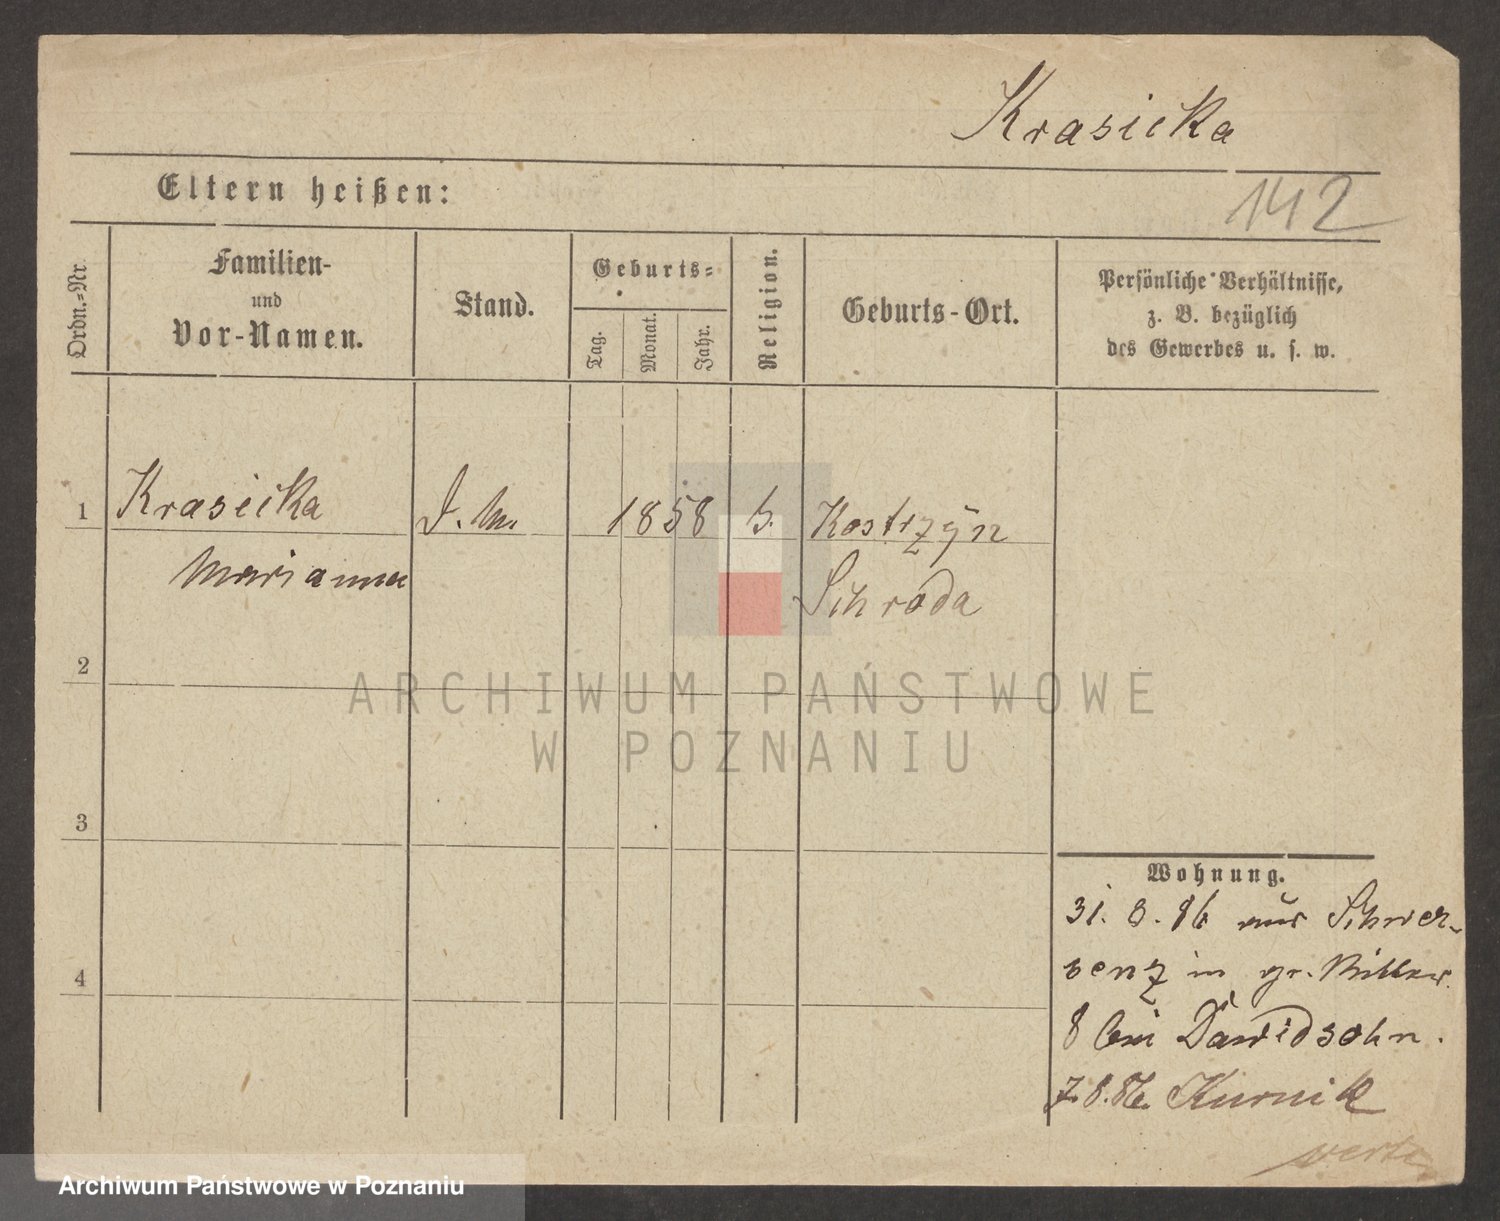 Krasicka
142
Eltern heißen:
Ordn.=Nr.
Familien-
und
Vor-Namen.
Stand.
Geburts=
Tag.
Monat.
Jahr.
Religion.
Geburts-Ort.
Persönliche Verhältnisse,
z. B. bezüglich
des Gewerbes u. s. w.
1 Krasicka 1858 Kostrzyn
Marianna Schroda
2
3
4
Wohnung.
31. 8. 86 aus Schwer-
senz in gr. Ritterst.
8 bei Dawidsohn.
7.8.86. Kurnik
verte
ARCHIWUM PAŃSTWOWE
W POZNANIU
Archiwum Państwowe w Poznaniu